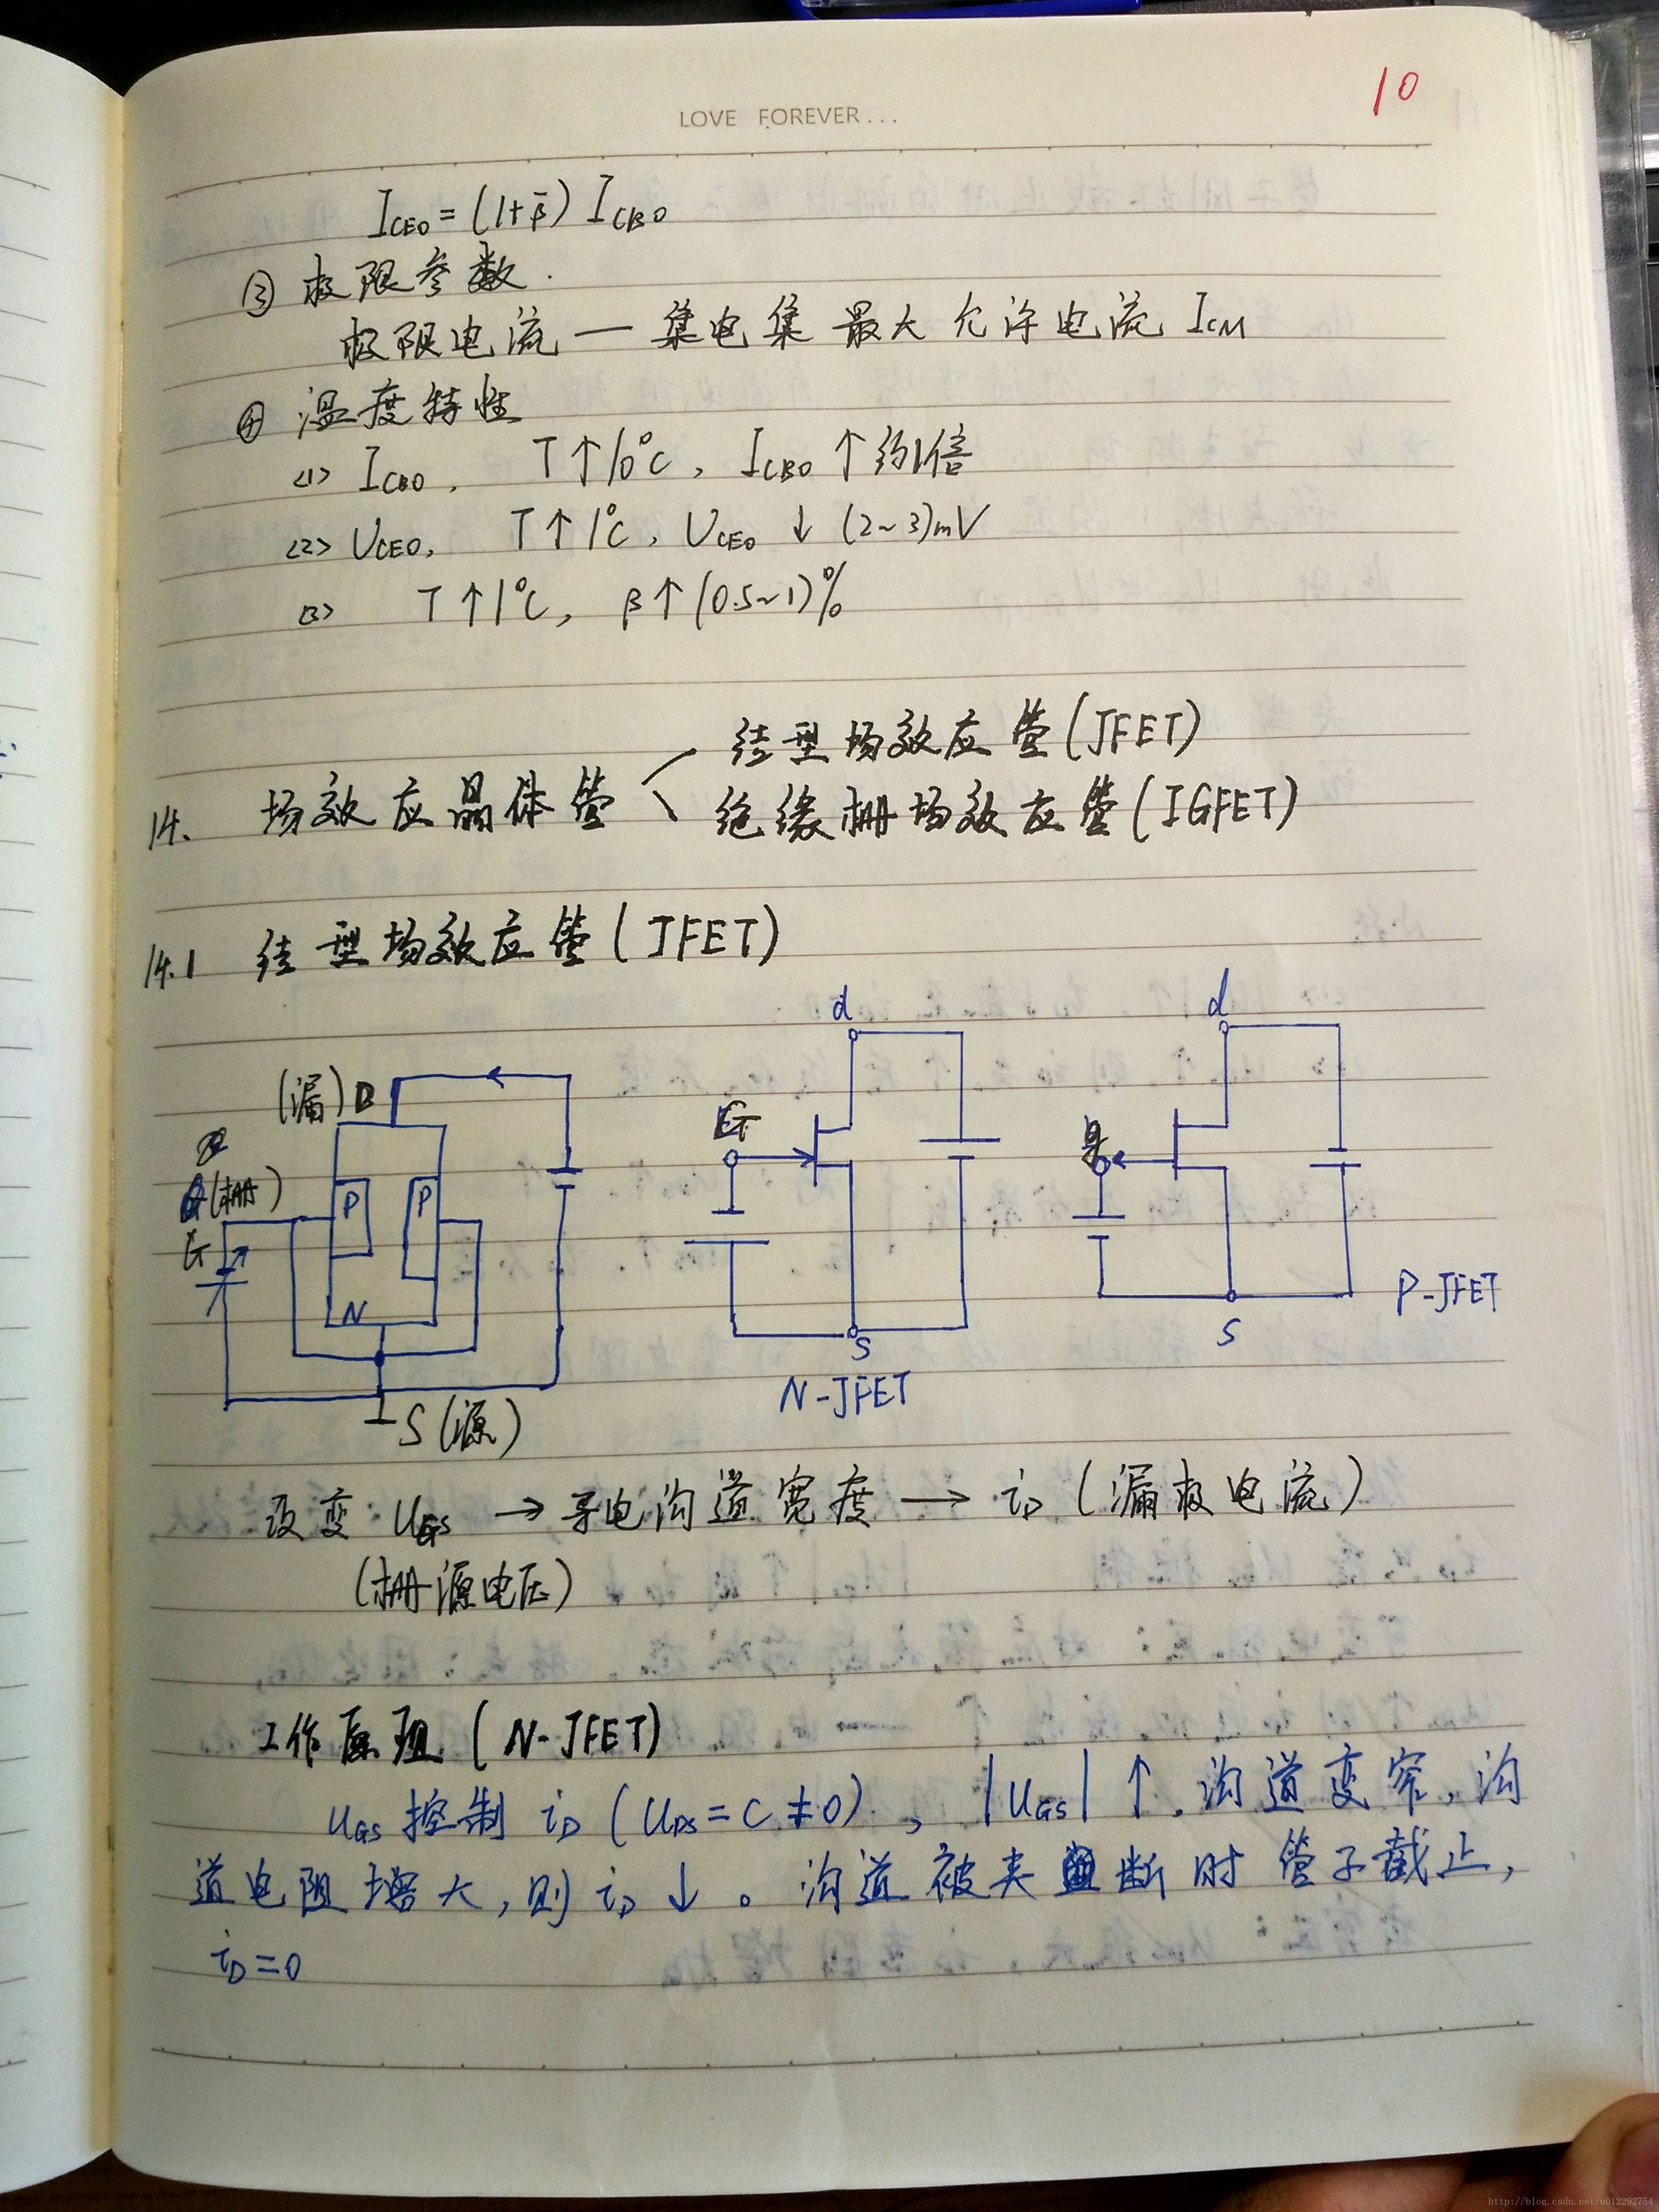 10
LOVE FOREVER...
I_CEO = (1+β̄) I_CBO
③ 极限参数.
极限电流 — 集电集最大允许电流 I_CM
④ 温度特性
<1> I_CBO, T↑10℃, I_CBO↑约1倍
<2> U_CEO, T↑1℃, U_CEO↓(2~3)mV
<3> T↑1℃, β↑(0.5~1)%
结型场效应管(JFET)
14. 场效应晶体管
绝缘栅场效应管(IGFET)
14.1 结型场效应管(JFET)
d
d
(漏) D
G
(栅)
P
P
G
N
P-JFET
S
S
N-JFET
S(源)
改变 u_GS → 导电沟道宽度 → i_D (漏极电流)
(栅源电压)
工作原理(N-JFET)
u_GS 控制 i_D (u_DS = C ≠ 0), |u_GS|↑,沟道变窄,沟
道电阻增大,则 i_D↓。沟道被夹断时管子截止,
i_D = 0
http://blog.csdn.net/u012292754